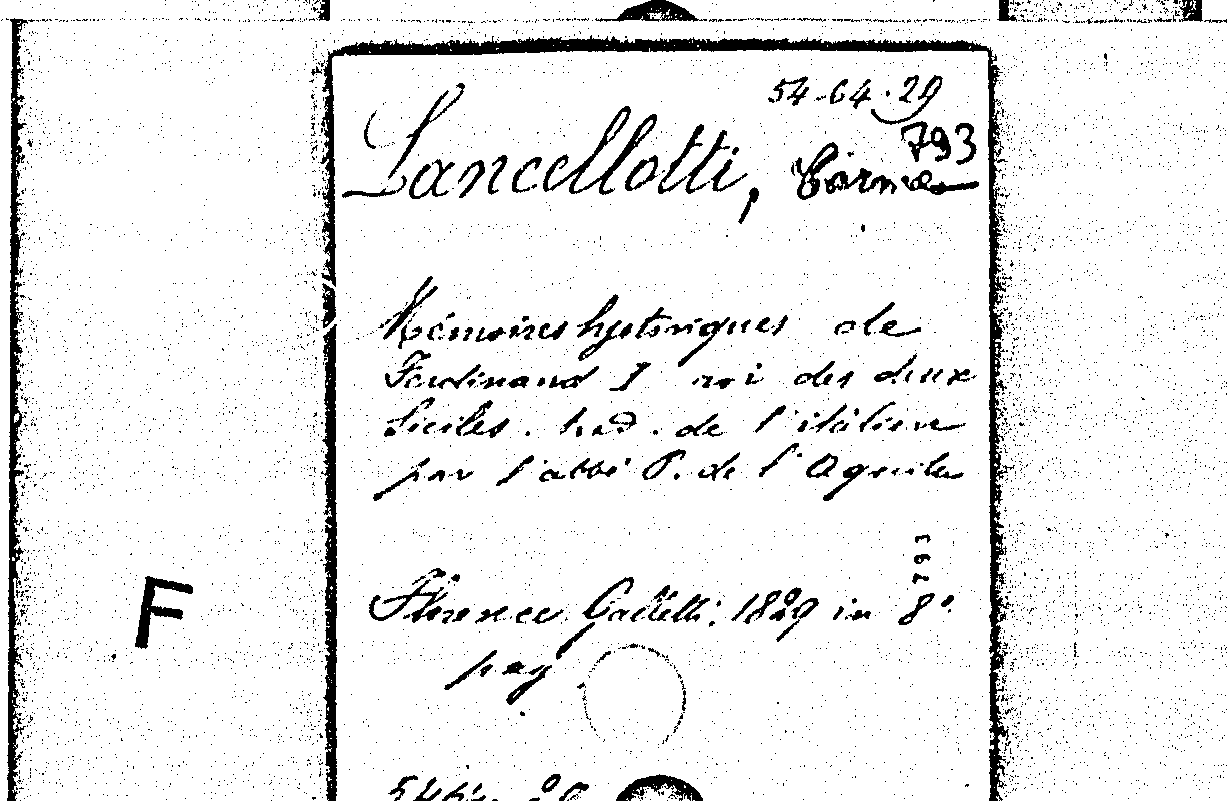 54-64.29
793
Lancellotti, Carme
Mémoires hystoriques de
Ferdinand I roi des deux
Siciles. trad. de l'italien
par l'abbé P. de l'Aquila
793
Florence Galletti: 1829 in 8°
pag.
F